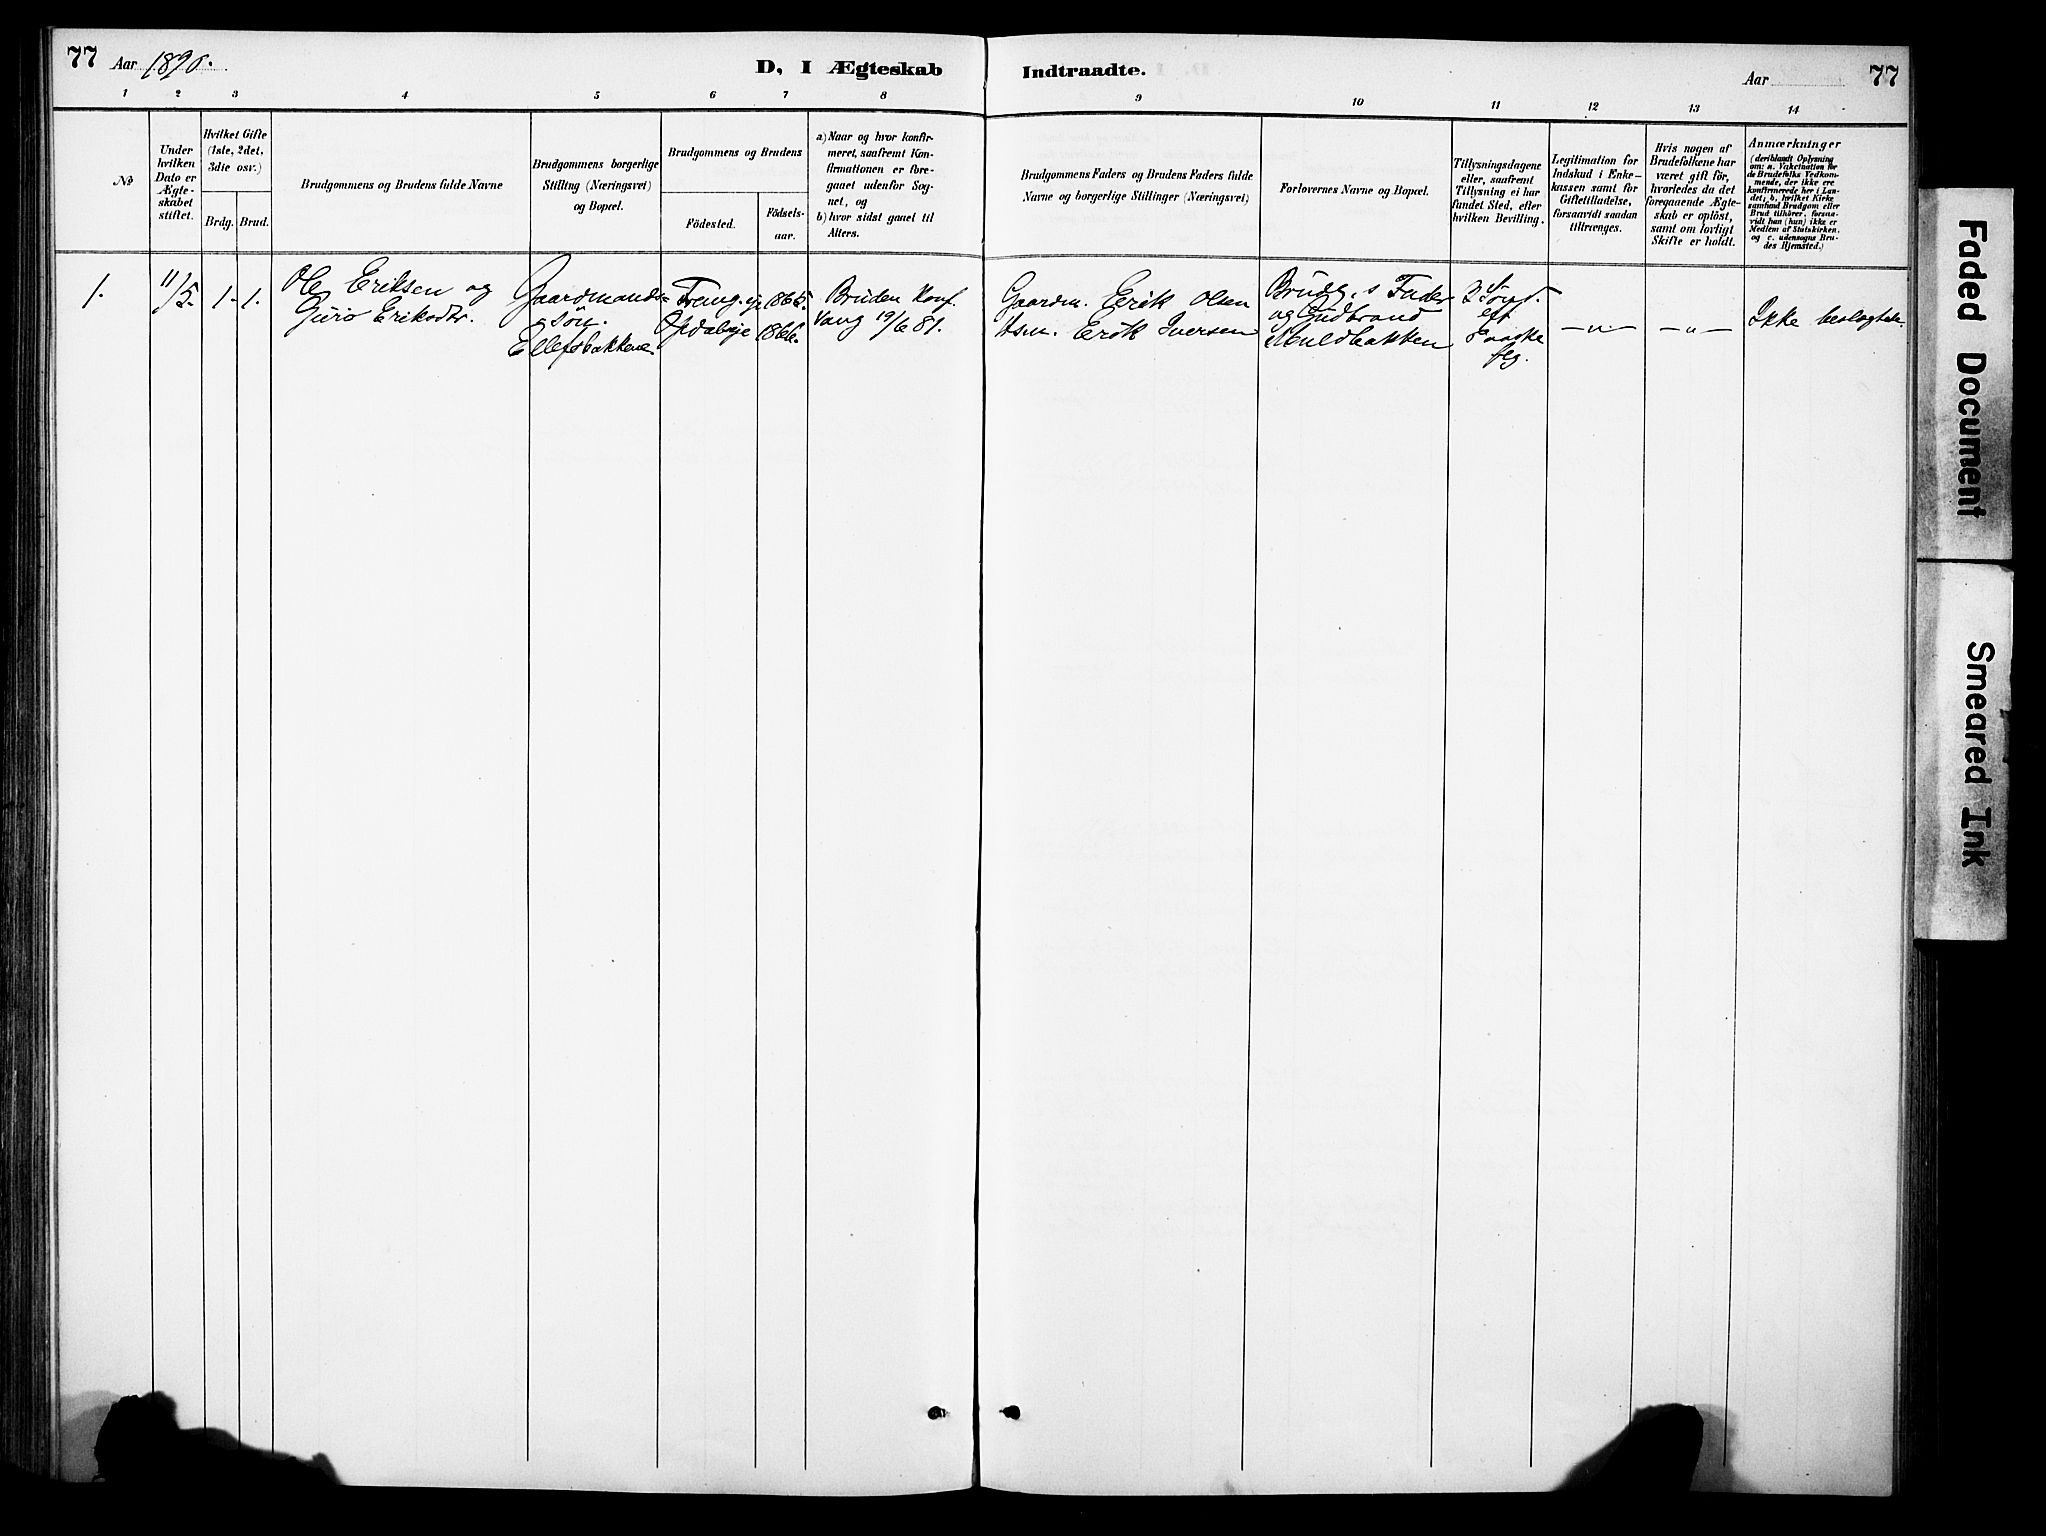 77 Aar 1890.
D, I Ægteskab Indtraadte.
Aar 77
1 2 3 4 5 6 7 8 9 10 11 12 13 14
No
Under
hvilken
Dato er
Ægte-
skabet
stiftet.
Hvilket Gifte
(1ste, 2det,
3die osv.)
Brdg. Brud.
Brudgommens og Brudens fulde Navne
Brudgommens borgerlige
Stilling (Næringsvei)
og Bopæl.
Brudgommens og Brudens
Födested.
Födsels-
aar.
a) Naar og hvor konfir-
meret, saafremt Kon-
firmationen er fore-
gaaet udenfor Sog-
net, og
b) hvor sidst gaaet til
Alters.
Brudgommens Faders og Brudens Faders fulde
Navne og borgerlige Stillinger (Næringsvei)
Forlovernes Navne og Bopæl.
Tillysningsdagene
eller, saafremt
Tillysning ei har
fundet Sted, efter
hvilken Bevilling.
Legitimation for
Indskud i Enke-
kassen samt for
Giftetilladelse,
forsaavidt saadan
tiltrænges.
Hvis nogen af
Brudefolkene har
været gift för,
hvorledes da det
foregaaende Ægte-
skab er oplöst,
samt om lovligt
Skifte er holdt.
Anmærkninger
(deriblandt Oplysning
om: a. Vakcination for
de Brudefolks Vedkom-
mende, der ikke ere
konfirmerede her i Lan-
det; b. hvilket Kirke-
samfund Brudgom eller
Brud tilhörer, forsaa-
vidt han (hun) ikke er
Medlem af Statskirken,
og c. udensogns Bru-
des Hjemsted.)
1. 11/5. 1. 1.
Ole Eriksen og
Guro Eriksdtr.
Gaardmands-
søn.
Ellefsbakkene.
1865.
Opdalseje 1866.
Bruden Konf.
Vang 19/6 81.
Gaardm. Erik Olsen
Hsm. Erik Iversen
Brudg.s Fader
og Gudbrand
Muldbakken
3 Sönd.
eft
Paaske
—„— —„—
Ikke beslægtede.
Faded Document
Smeared Ink